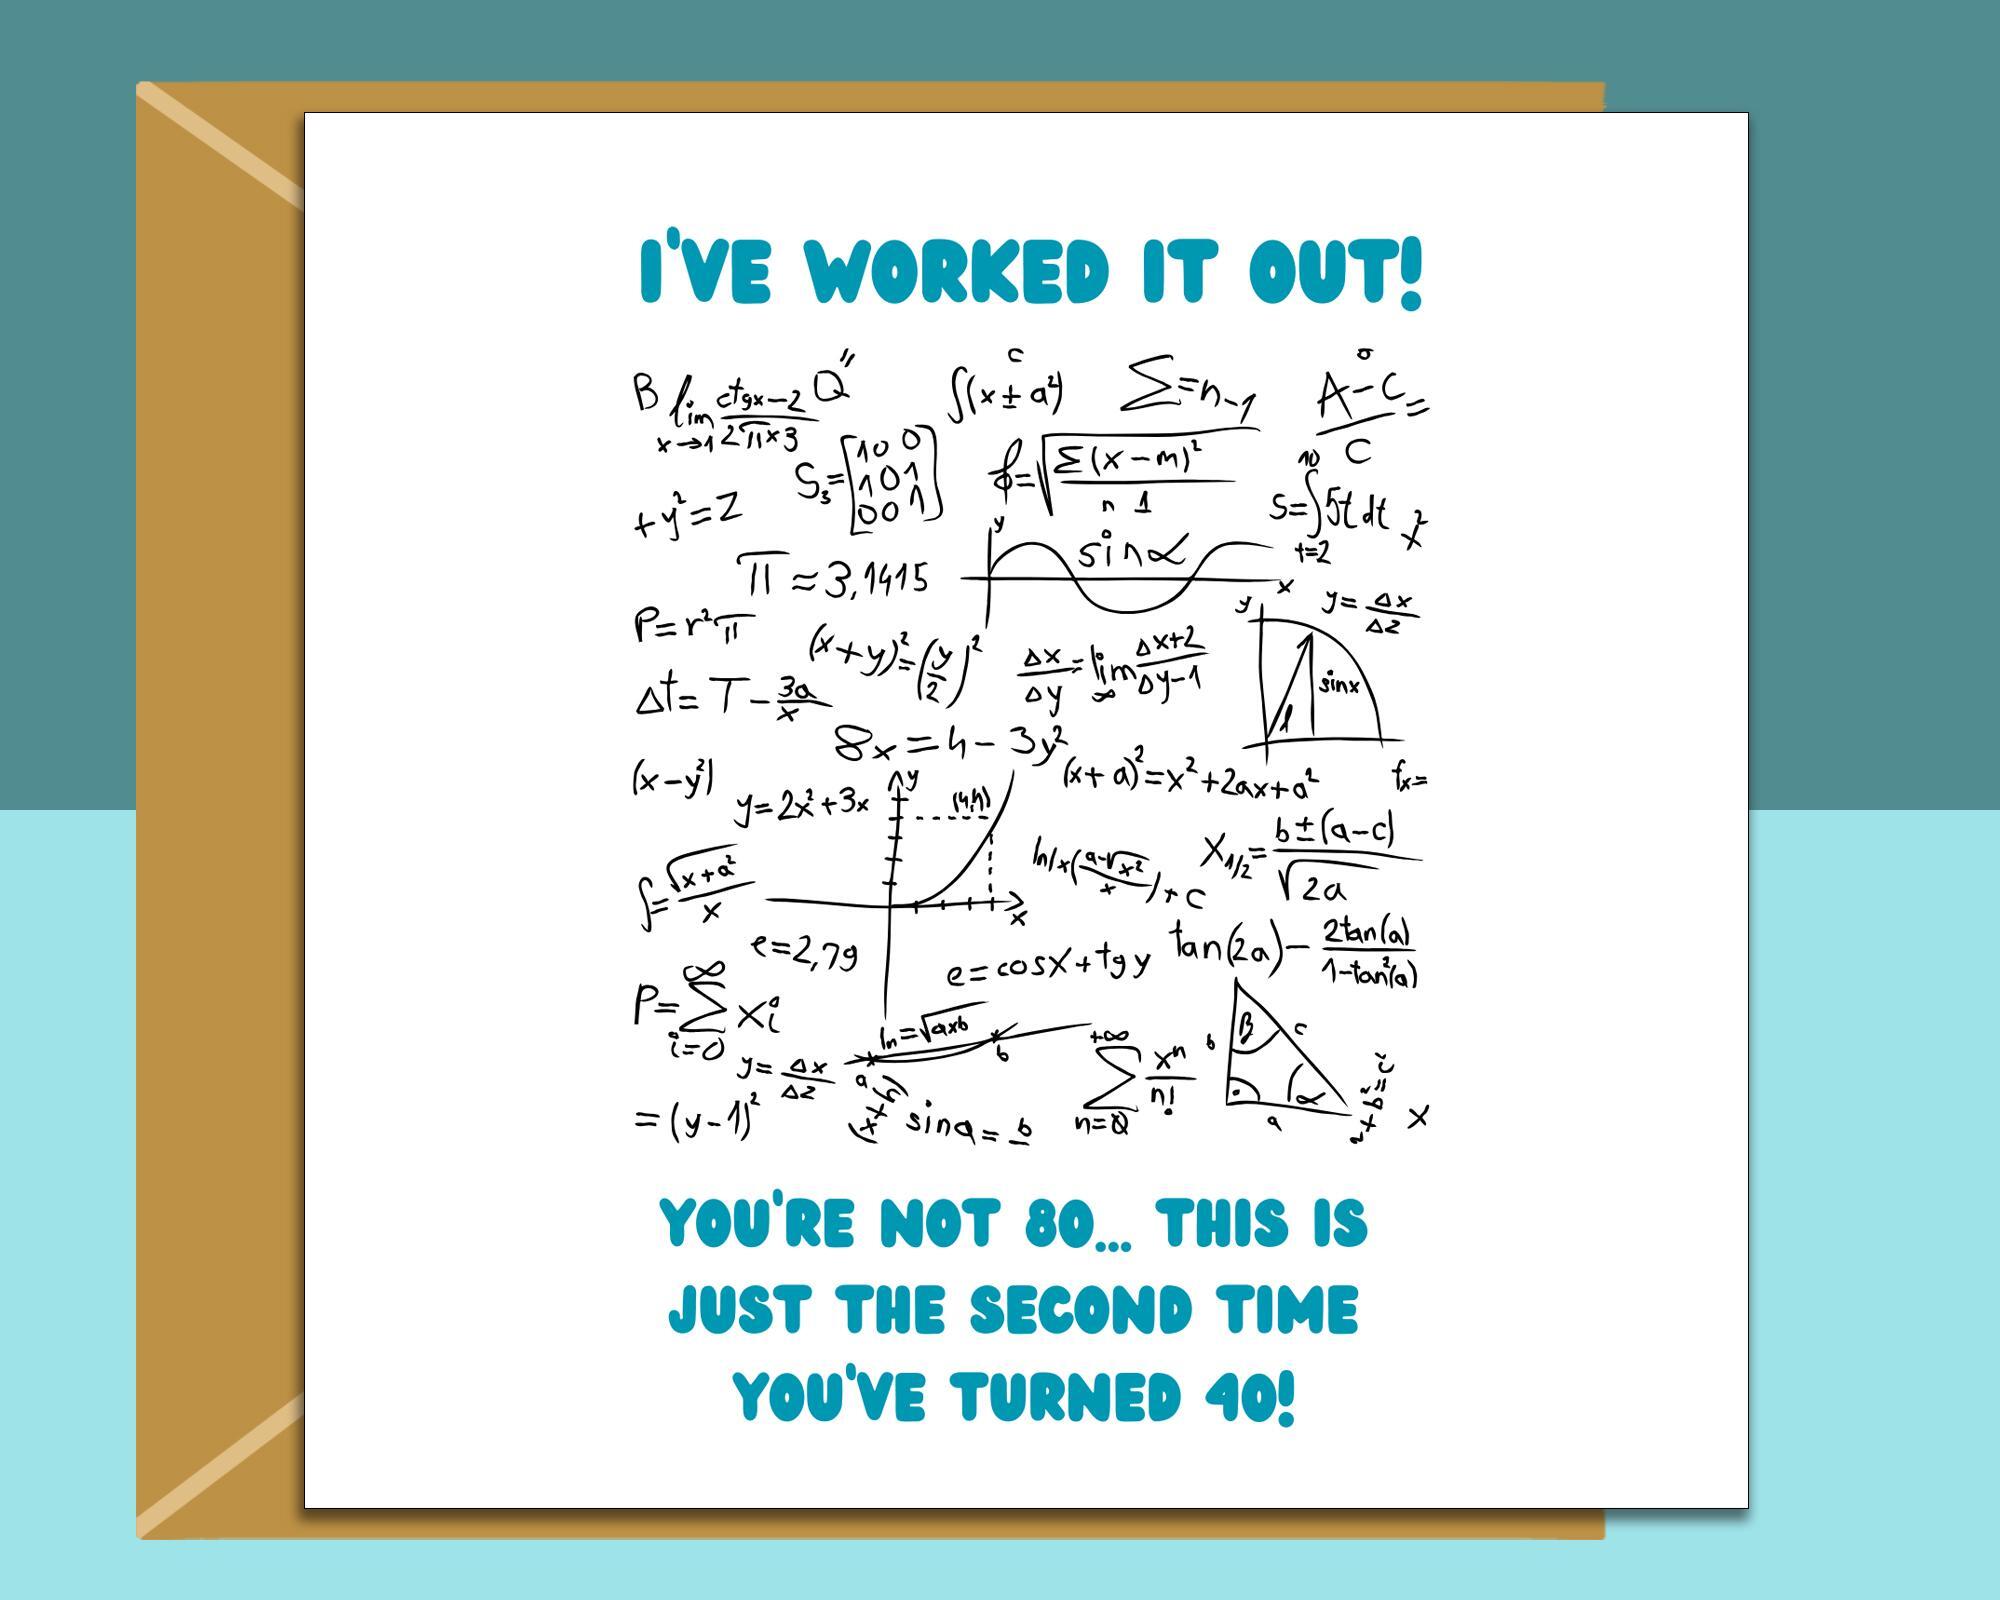 I'VE WORKED IT OUT!
B lim x→1 ctgx−2 / 2π×3 Q"
∫(x±a²) c
Σ=n-1
A−C / C =
S₃= [10 0 / 101 / 00 1]
=√Σ(x−m)² / n 1
+y²=Z
S=∫5t dt 10 t=2
x²
π≈3,1415
y sinα x
P=r²π
(x+y)²=(y/2)²
Δx/Δy=lim ∞ Δx+2/Δy−1
y=Δx/Δz
y sinx
Δt=T−3a/x
8x=h−3y²
(x−y²)
y=2x²+3x
y x
(x+a)²=x²+2ax+a²
fx=
∫=√x+a² / x
ln/x(a-√x² / x)+C
X1/2=b±(a−c) / √2a
e=2,79
e=cosx+tgy
tan(2a)−2tan(a) / 1−tan²(a)
P=Σ xi ∞ i=0
y=Δx/Δz
ln=√axb
a b
+∞ Σ xⁿ/n!
b β c α a
=(y−1)²
sina=b
x
YOU'RE NOT 80... THIS IS
JUST THE SECOND TIME
YOU'VE TURNED 40!